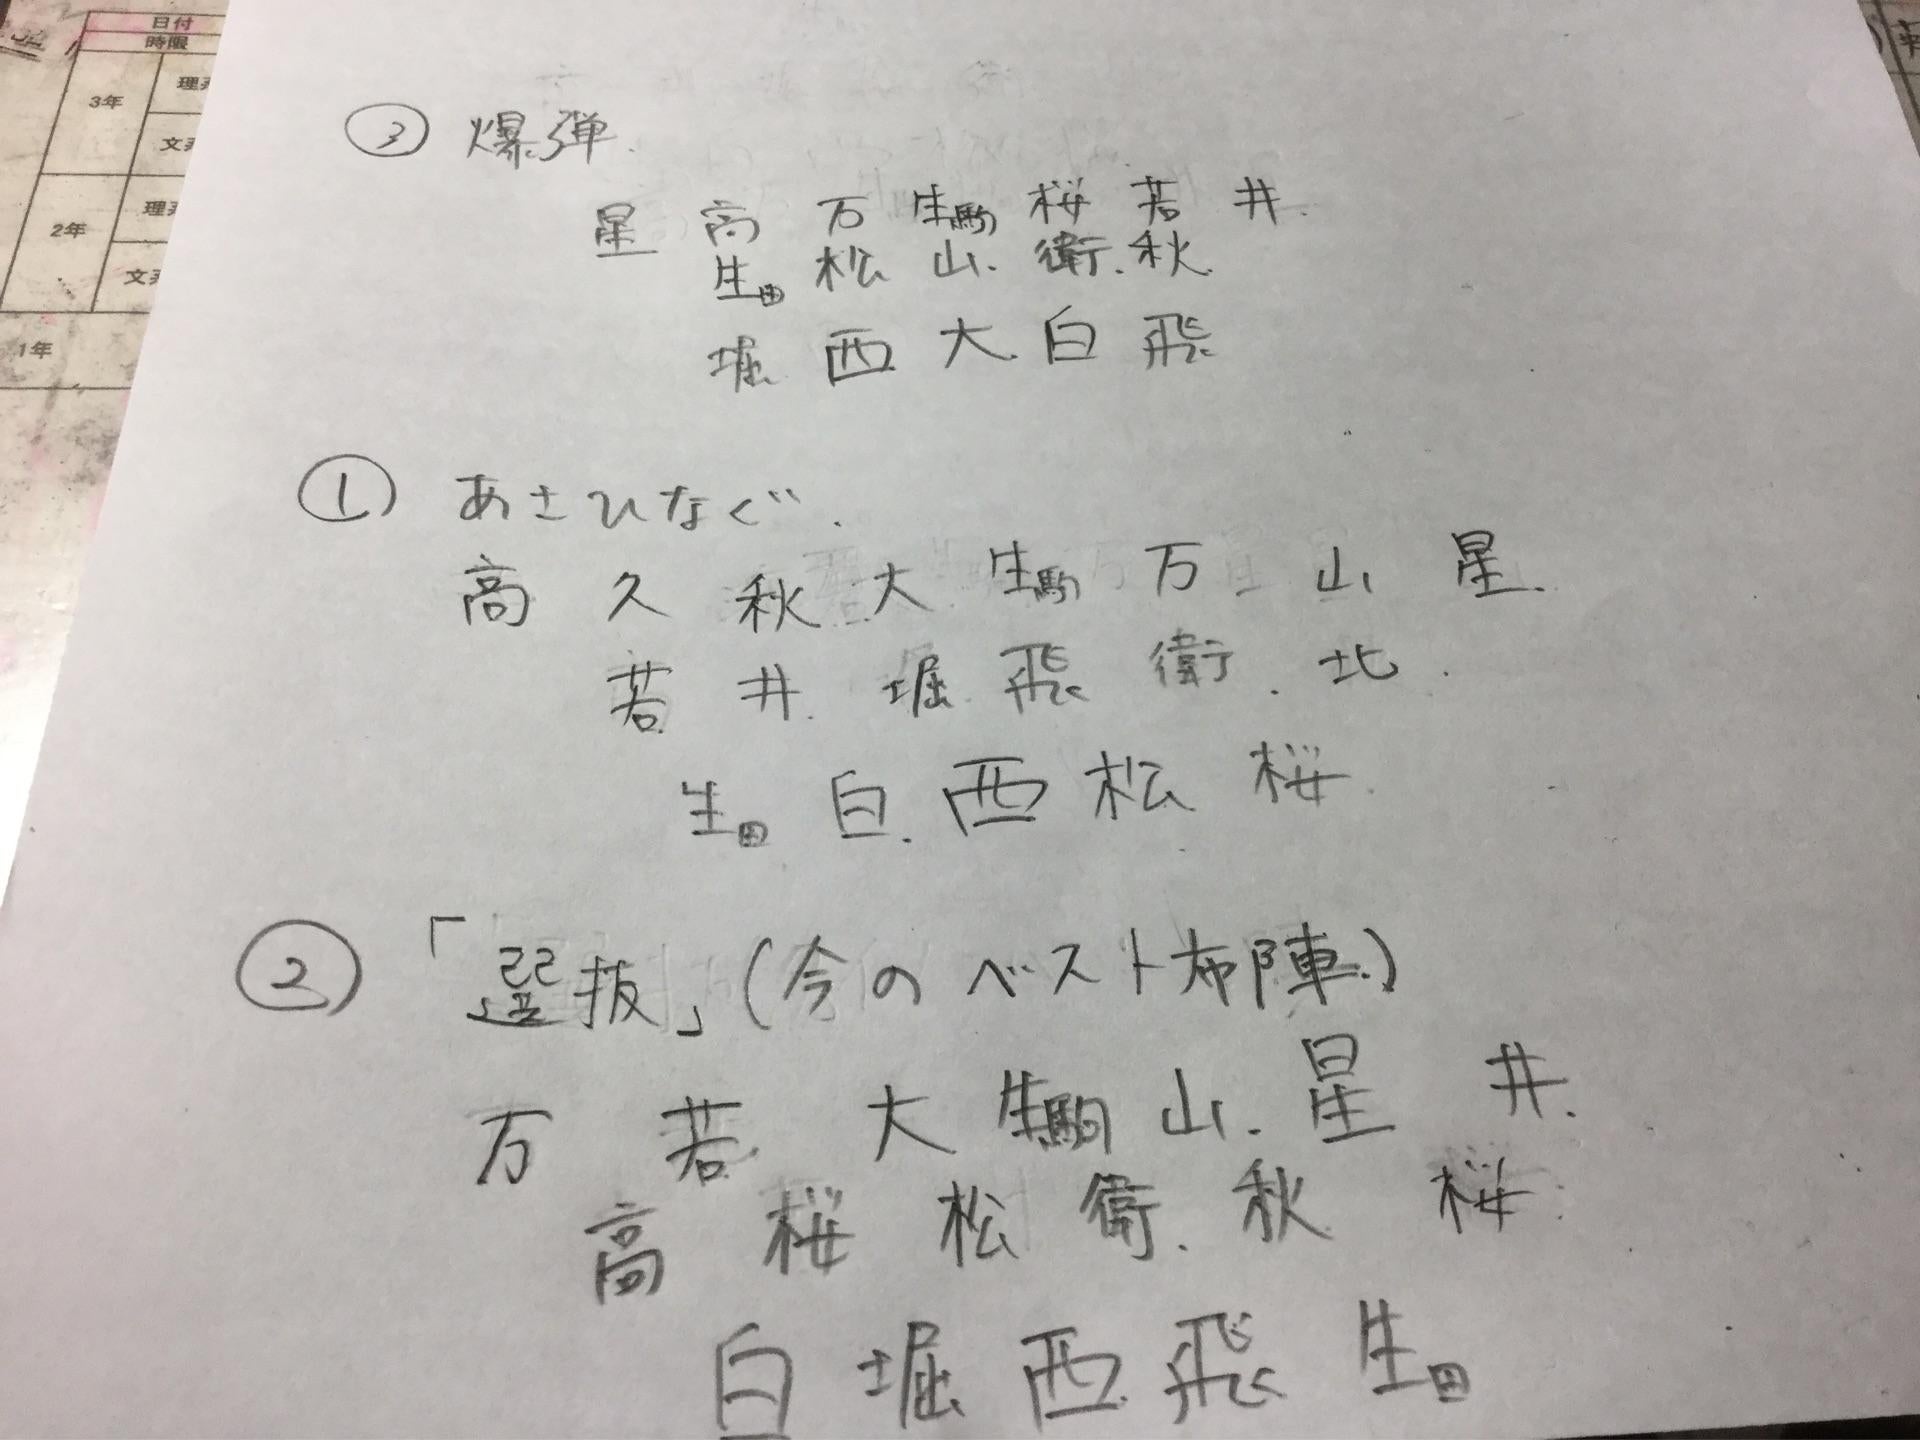 日付
時限
3年
理系
文系
2年
理系
文系
1年
③ 爆弾
星 高 万 生駒 桜 若 井.
生田 松 山. 衛. 秋.
堀 西 大 白 飛
① あさひなぐ.
高 久 秋 大 生駒 万 山 星.
若 井. 堀 飛 衛. 北.
生田 白. 西 松 桜.
② 「選抜」(今のベスト布陣.)
万 若 大 生駒 山. 星 井.
高 桜 松 衛. 秋 桜
白 堀 西 飛 生田